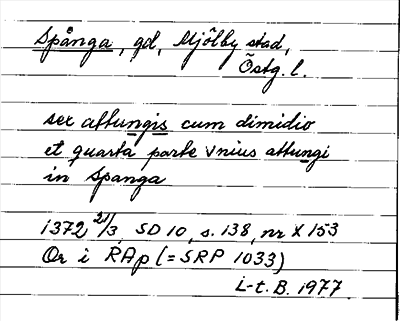 Spånga, gd, Mjölby stad,
Östg. l.
sex attungis cum dimidio
et quarta parte vnius attungi
in Spanga
1372 21/3, SD 10, s. 138, nr X 153
Or i RAp (= SRP 1033)
L-t. B. 1977